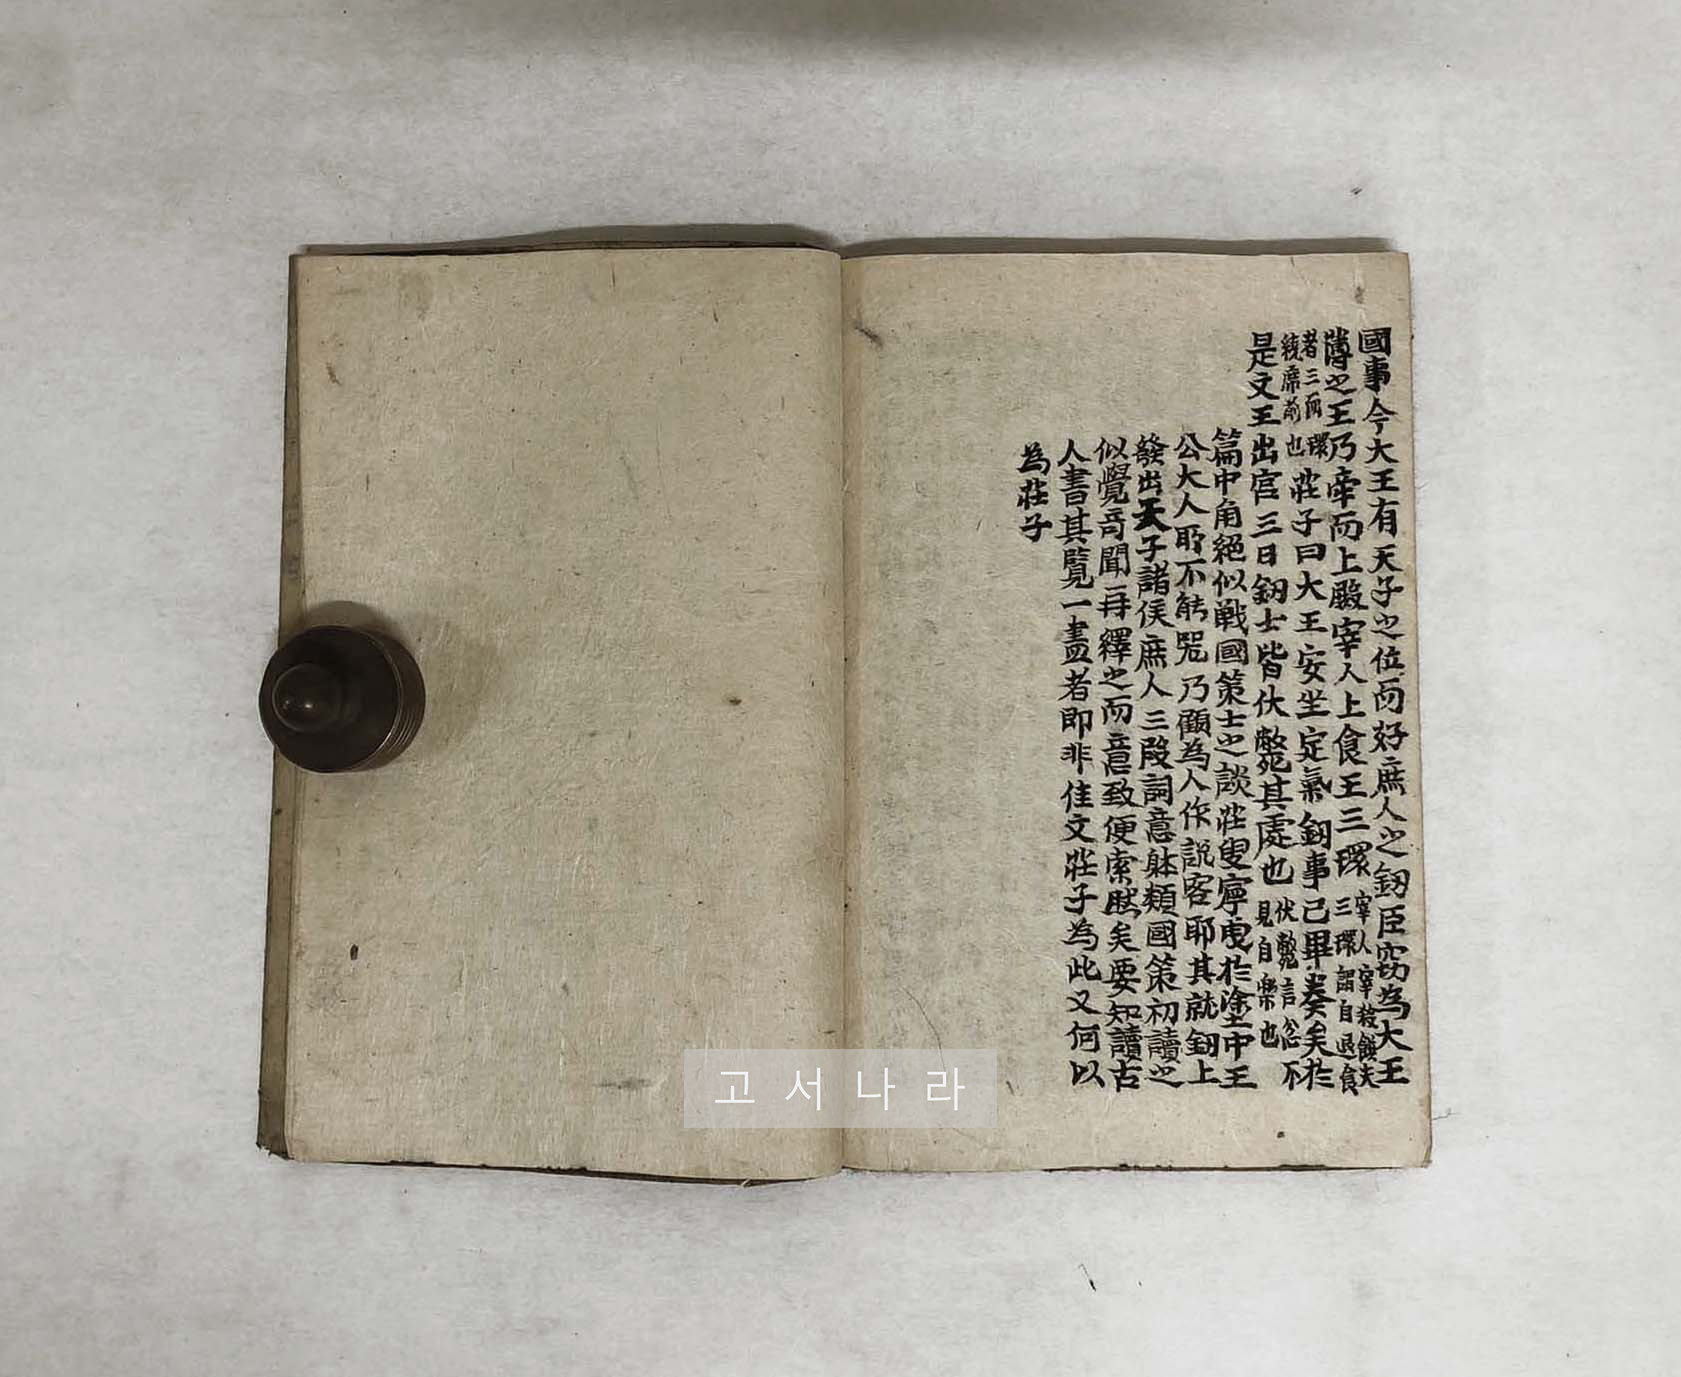 國事今大王有天子之位而好庶人之釰臣窃為大王
薄之王乃牵而上殿宰人上食王三環宰人宰殺饍夫三環謂自退食
者三而環繞席前也莊子曰大王安坐定氣釰事已畢奏矣於
是文王出宫三日釰士皆伏斃其處也伏斃言忿不見自
篇中角絕似戦國策士之談莊叟寧曳於塗中王
公大人所不能
乃顧為人作說客耶其就釰上
發出天子諸侯庶人三段詞意躰類國策初讀之
似覺竒聞再繹之而意致便索然矣要知讀古
人書其覽一盡者即非佳文莊子為此又何以
為莊子
고서나라